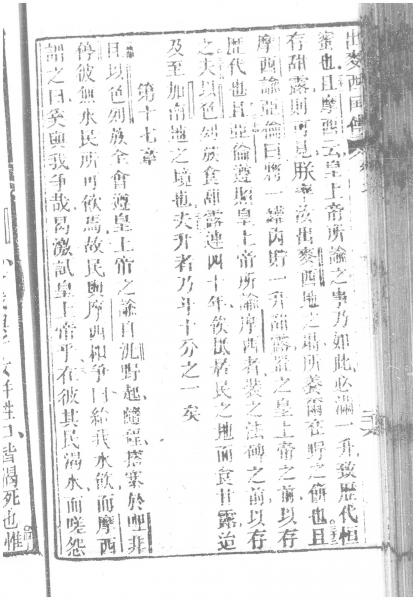 出麥西國傳
蜜也且摩西云皇上帝所諭之事乃如此必滿一升致歷代恒
存甜露則可見朕率汝出麥西地之場所養爾在野之餅也且
摩西諭亞倫曰將一罐內貯一升甜露置之皇上帝之前以存
歷代也且亞倫遵照皇上帝所諭摩西者裝之法碑之前以存
之夫以色列族食甜露連四十年飲抵居民之地而食甘露迨
及至加南地之境也夫升者乃斗十分之一矣
第十七章
且以色列族全會遵皇上帝之諭自汛野起隨程搭寨於呬非
停彼無水民所可飲焉故民與摩西相爭曰給我水飲而摩西
謂之曰奚與我爭哉曷激試皇上帝乎在彼其民渴水而嗟怨
牲口皆渴死也惟